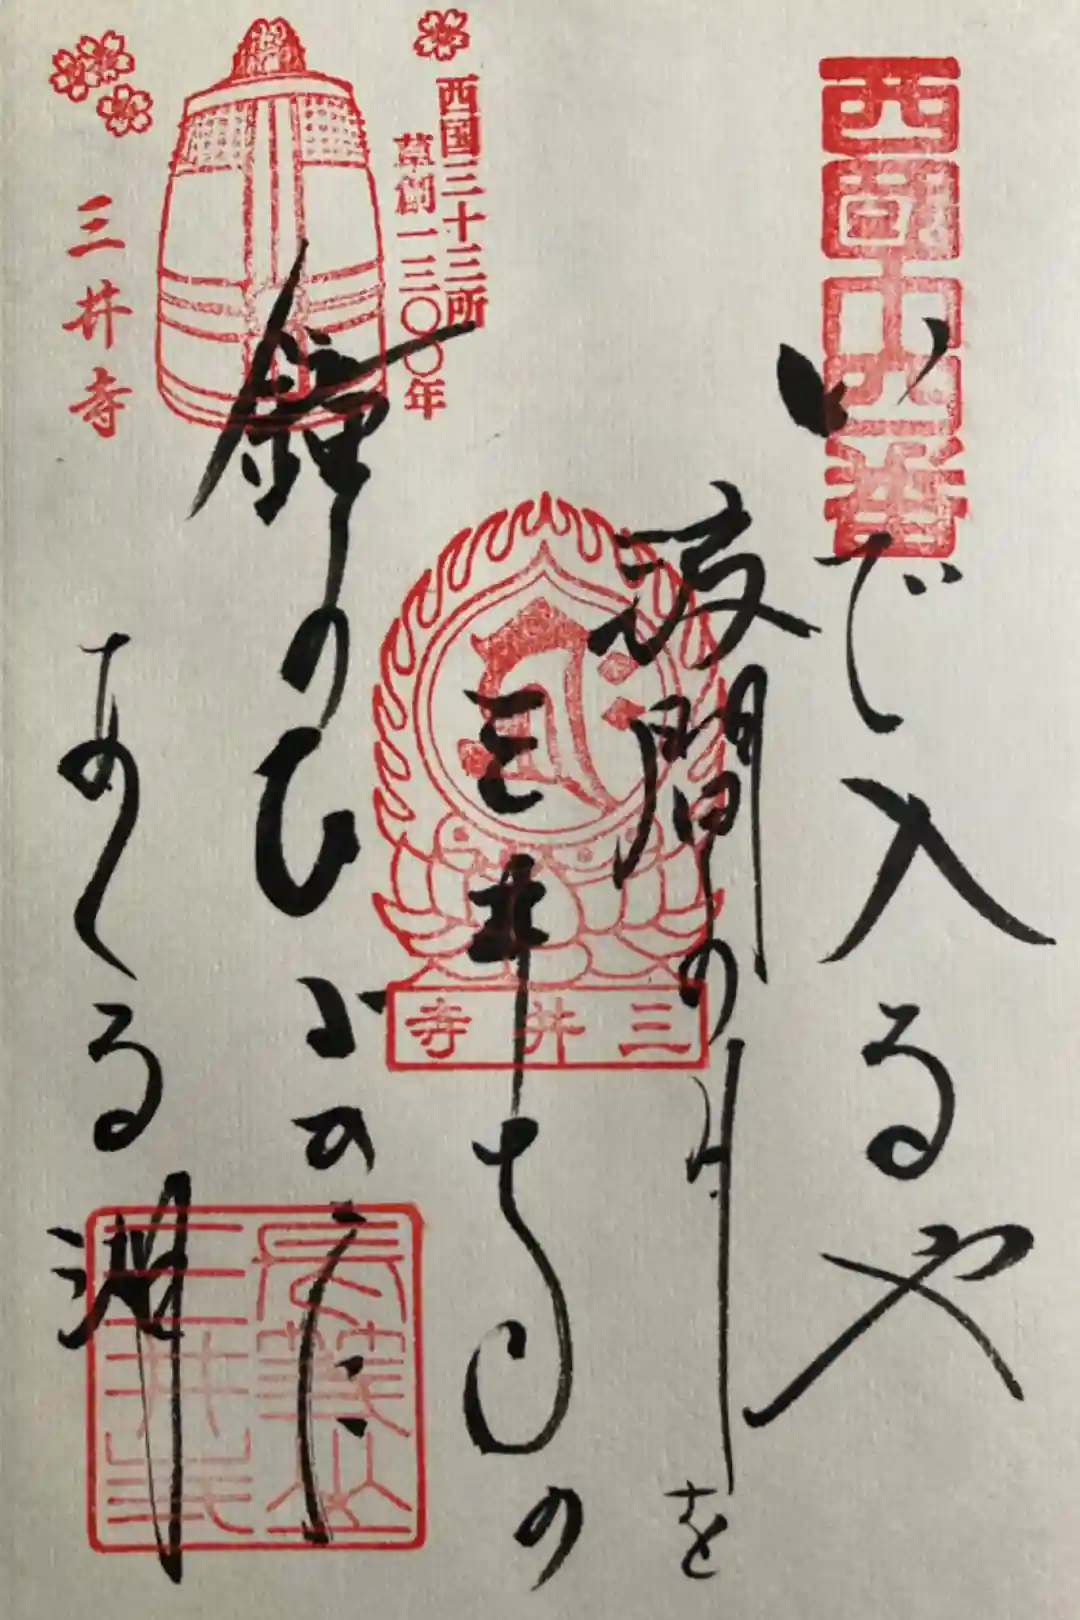 西国十四番
いで入るや
波間の月を
三井寺の
鐘のひゞきに
あくる湖
西国三十三所
草創一三〇〇年
三井寺
三井寺